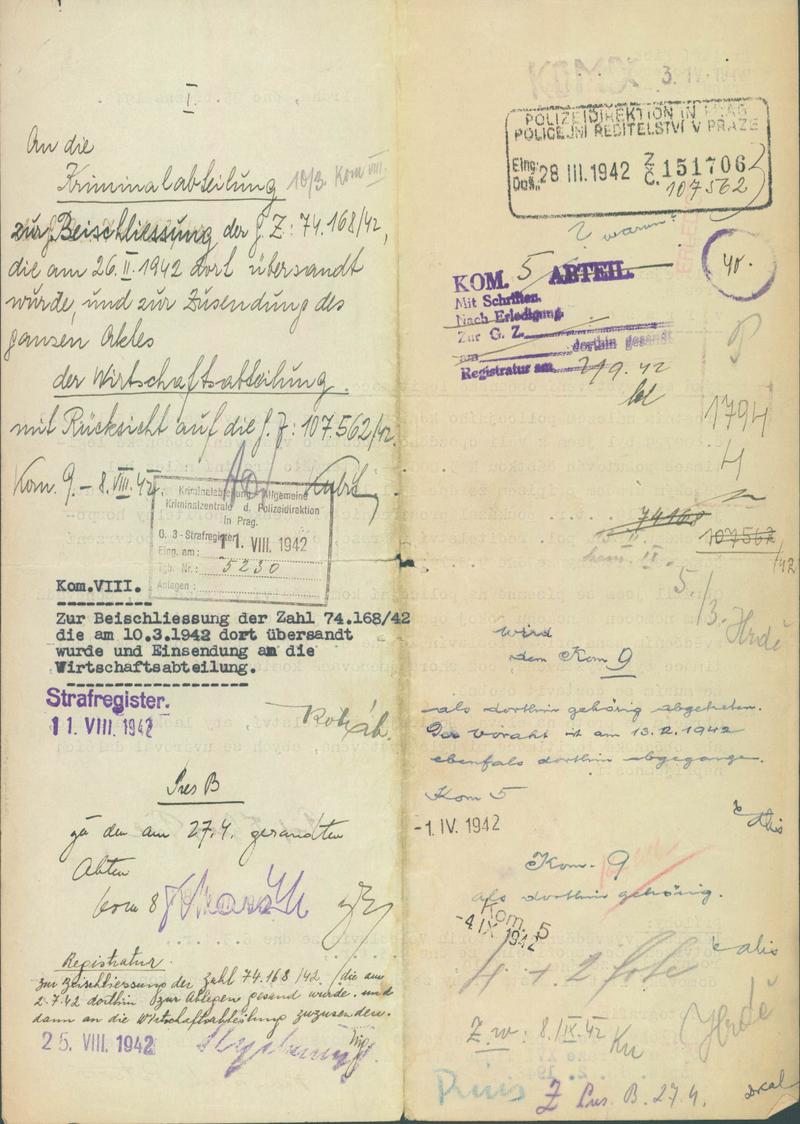 I.
An die
Kriminalabteilung 10/3 Kom VIII
zur Beischliessung der G. Z: 74.168/42,
die am 26.II.1942 dort übersandt
wurde, und zur Zusendung des
ganzen Aktes
der Wirtschaftsabteilung.
mit Rücksicht auf die G. Z: 107.562/42.
Kom. 9. - 8. VIII. 42
Kriminalabteilung Allgemeine
Kriminalzentrale d. Polizeidirektion
in Prag.
G. 3 - Strafregister
Eing. am: 11. VIII. 1942
Tgb. Nr.: 5230
Anlagen:
Kom.VIII.
Zur Beischliessung der Zahl 74.168/42
die am 10.3.1942 dort übersandt
wurde und Einsendung an die
Wirtschaftsabteilung.
Strafregister.
11. VIII. 1942
Pres B
zu den am 27.4. gesandten
Akten
kom 8
Registratur.
zur Beischliessung der Zahl 74.168/42. die am
2.7.42 dorthin zur Ablegen gesend wurde. und
dann an die Wirtschaftsabteilung zuzusenden.
25. VIII. 1942
3. IV. 1942
POLIZEIDIREKTION IN PRAG
POLICEJNÍ ŘEDITELSTVÍ V PRAZE
Eing.: Došl. 28 III. 1942 Z. Č. 151706
107562
? warum?
KOM. 5 ABTEIL.
Mit Schriften.
Nach Erledigung.
Zur G. Z.
am dorthin gesandt
Registratur am 2/9. 42
40.
1794
4
74168
107562/42
5./3. Hrdě
wird
dem Kom 9
als dorthin gehörig abgetreten.
Der Vorakt ist am 13.2.1942
ebenfals dorthin abgegangen.
Kom 5
-1. IV. 1942
Kom. 9
als dorthin gehörig.
Kom. 5
-4. IX 1942
4 + 2 fote
Z. w: 8./IX. 42
Hrdě
Z Pres. B. 27.4.